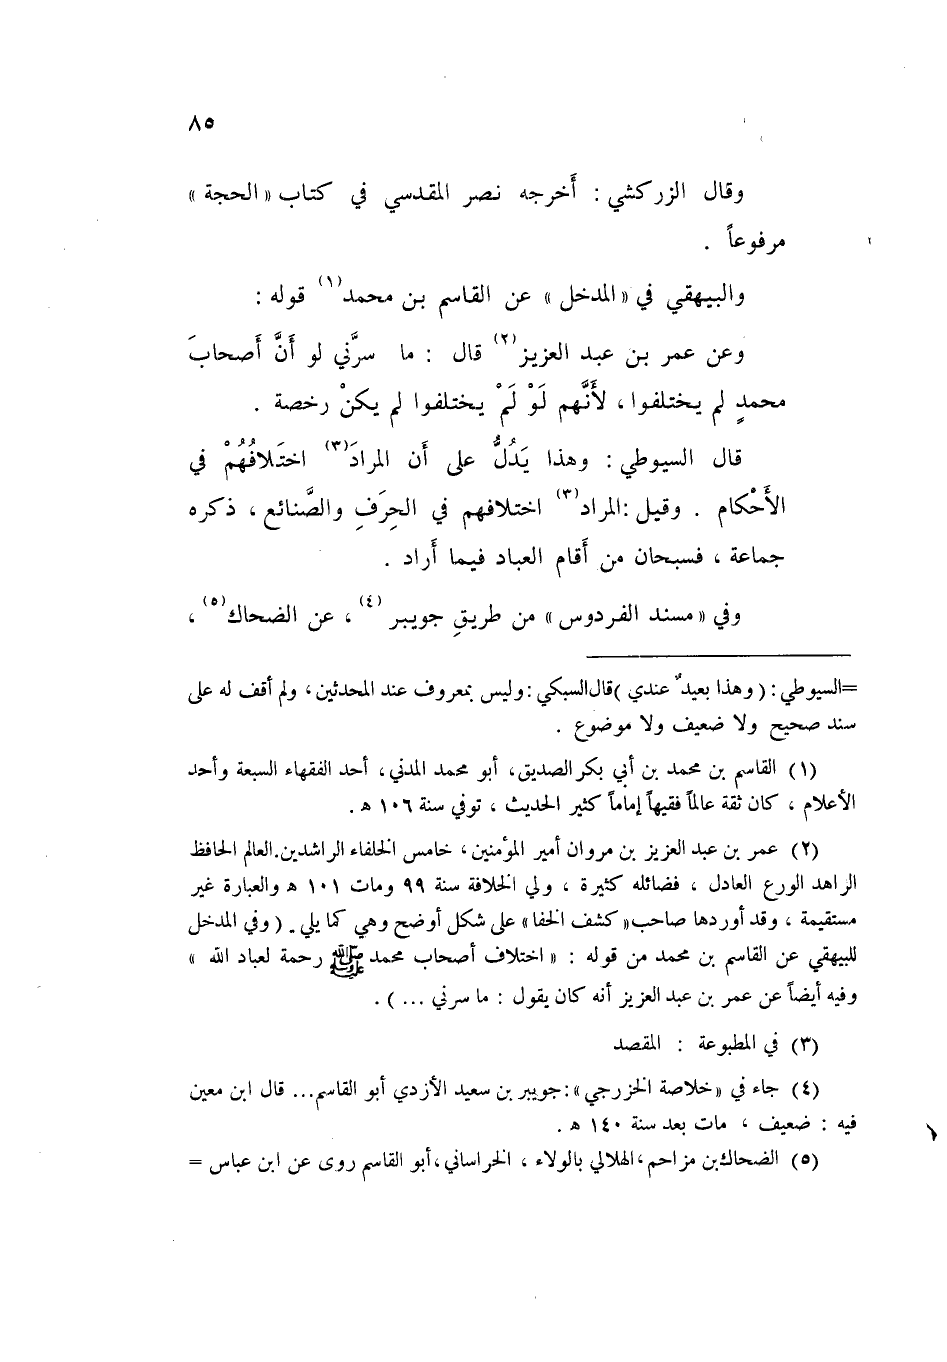 ٨٥
وقال الزركشي : أَخرجه نصر المقدسي في كتاب « الحجة »
مرفوعاً .
والبيهقي في « المدخل » عن القاسم بن محمد(١) قوله :
وعن عمر بن عبد العزيز(٢) قال : ما سرَّني لو أَنَّ أَصحابَ
محمدٍ لم يختلفوا ، لأَنَّهم لَوْ لَمْ يختلفوا لم يكنْ رخصة .
قال السيوطي : وهذا يَدُلُّ على أَن المرادَ(٣) اختَلافُهُمْ في
الأَحْكام . وقيل : المراد(٣) اختلافهم في الحِرَفِ والصَّنائع ، ذكره
جماعة ، فسبحان من أَقام العباد فيما أَراد .
وفي « مسند الفردوس » من طريقِ جويبر(٤) ، عن الضحاك(٥) ،
=السيوطي : ( وهذا بعيدٌ عندي ) قال السبكي : وليس بمعروف عند المحدثين ، ولم أقف له على
سند صحيح ولا ضعيف ولا موضوع .
(١) القاسم بن محمد بن أبي بكر الصديق ، أبو محمد المدني ، أحد الفقهاء السبعة وأحد
الأعلام ، كان ثقة عالماً فقيهاً إماماً كثير الحديث ، توفي سنة ١٠٦ ه .
(٢) عمر بن عبد العزيز بن مروان أمير المؤمنين ، خامس الخلفاء الراشدين . العالم الحافظ
الزاهد الورع العادل ، فضائله كثيرة ، ولي الخلافة سنة ٩٩ ومات ١٠١ ه والعبارة غير
مستقيمة ، وقد أوردها صاحب « كشف الخفا » على شكل أوضح وهي كما يلي . ( وفي المدخل
للبيهقي عن القاسم بن محمد من قوله : « اختلاف أصحاب محمد ﷺ رحمة لعباد الله »
وفيه أيضاً عن عمر بن عبد العزيز أنه كان يقول : ما سرني ... ) .
(٣) في المطبوعة : المقصد
(٤) جاء في « خلاصة الخزرجي » : جويبر بن سعيد الأزدي أبو القاسم ... قال ابن معين
فيه : ضعيف ، مات بعد سنة ١٤٠ ه .
(٥) الضحاك بن مزاحم ، الهلالي بالولاء ، الخراساني ، أبو القاسم روى عن ابن عباس =